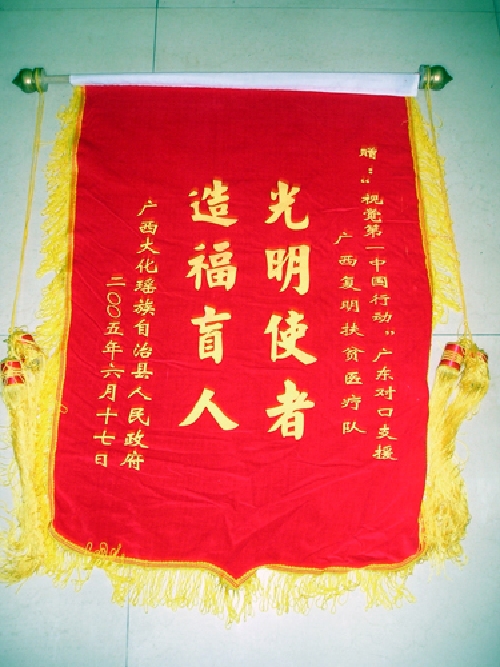 赠："视觉第一中国行动"广东对口支援
广西复明扶贫医疗队
光明使者
造福盲人
广西大化瑶族自治县人民政府
二〇〇五年六月十七日